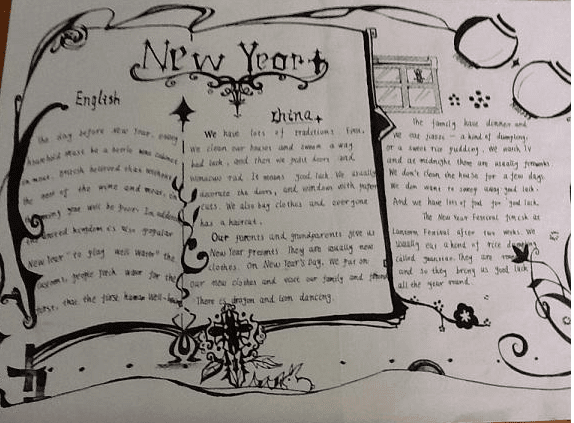 New Year
English
The day before New Year, every
household must be a bottle wine cabinet
in meat. British believed that without
the rest of the wine and meat, in
the coming year will be poor. In addition
the united kingdom is also popular
New Year "to play well water" the
customs, people fetch water for the
first, that the first human well-
China
We have lots of traditions. First,
We clean our houses and sweep a way
bad luck, and then we paint doors and
windows red. It means good luck. We usually
decorate the doors, and windows with paper
cuts. We also buy clothes and everyone
has a haircut.
Our parents and grandparents give us
New Year presents. They are usually new
clothes. On New Year's Day, we put on
our new clothes and visit our family and
There is dragon and lion dancing.
The family have dinner and
we eat jiaozi — a kind of dumpling,
or a sweet rice pudding. We watch TV
and at midnight there are usually fireworks
We don't clean the house for a few days.
We don want to sweep away good luck.
And we have lots of food for good luck.
The New Year Festival finish at
Lantern Festival after two weeks. We
usually eat a kind of rice
called yuanxiao. They are
and so they bring us good luck
all the year round.